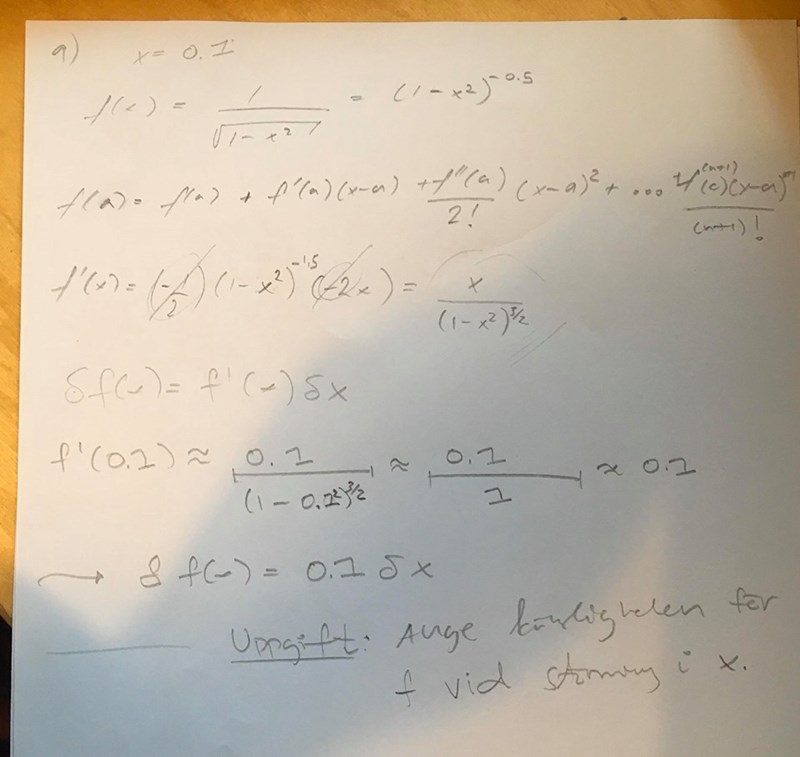 a) x = 0.1
f(x) = 1/√(1-x²) = (1-x²)^-0.5
f(a) = f(a) + f'(a)(x-a) + f''(a)/2! (x-a)² + ... + f^(n+1)(c)(x-a)^n+1/(n+1)!
f'(x) = (-1/2)(1-x²)^-1.5(-2x) = x/(1-x²)^3/2
δf(x) = f'(x)δx
f'(0.1) ≈ 0.1/(1-0.1²)^3/2 ≈ 0.1/1 ≈ 0.1
→ δf(x) = 0.1 δx
Uppgift: Ange känsligheten för
f vid störning i x.